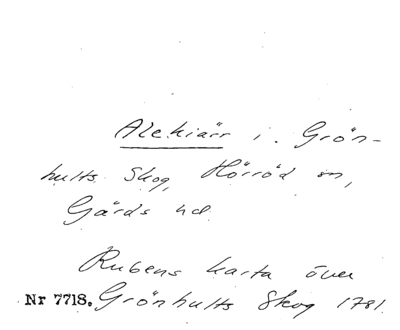 Alekiärr i. Grön-
hults Skog, Hörröd sn,
Gärds hd.
Rubens karta över
Nr 7718. Grönhults Skog 1781.